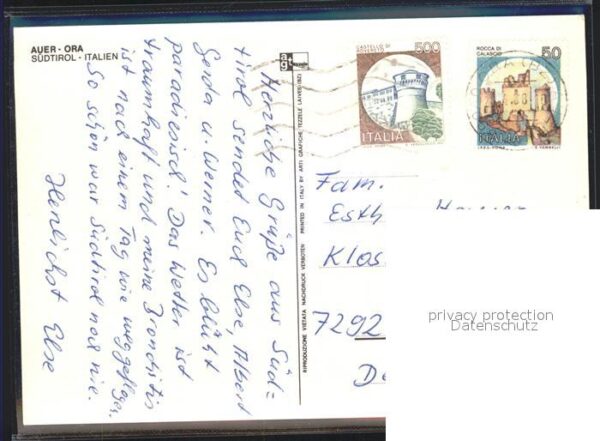 AUER - ORA
SÜDTIROL - ITALIEN
Herzliche Grüße aus Süd-
tirol sendet Euch Else, Albert
Gerda u. Werner. Es blüht
paradiesisch! Das Wetter ist
traumhaft und meine Bronchitis
ist nach einem Tag wie weggeflogen
So schön war Südtirol noch nie.
Herzlichst Else
RIPRODUZIONE VIETATA NACHDRUCK VERBOTEN PRINTED IN ITALY BY ARTI GRAFICHE TEZZELE LAIVES (BZ)
CASTELLO DI ROVERETO
500
ITALIA
ROCCA DI CALASCIO
50
ITALIA
Fam.
Esth
Klos
7292
De
privacy protection
Datenschutz